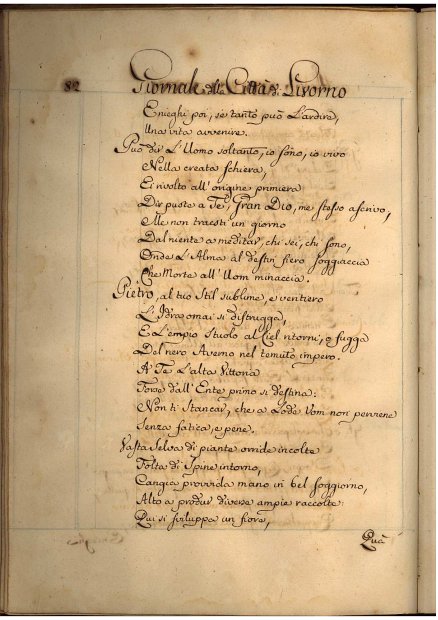 82 Giornale della Città di Livorno
E nieghi poi, se tanto può l'ardire,
Una vita avvenire.
Può dir L'Uomo soltanto, io sono, io vivo
Nella creata schiera,
Ei rivolto all'origine primiera
Dir puote a Te, Gran Dio, me stesso ascrivo,
Me non traesti un giorno
Dal niente a meditar, chi sei, chi sono,
Onde L'Alma al destin fiero soggiaccia
Che Morte all'Uom minaccia.
Pietro, al tuo Stil sublime, e veritiero
L'Idra omai si distrugga,
E L'empio Stuolo al Ciel ritorni, o fugga
Del nero Averno nel temuto impero.
A Te L'alta Vittoria
Forse dall'Ente primo si destina:
Non ti Stancar, che a Lode Uom non perviene
Senza fatica, e pene.
Vasta Selva di piante orride incolte
Folta di Spine intorno,
Cangia provvida mano in bel soggiorno,
Alto a produr diverse ampie raccolte:
Qui si sviluppa un fiore,
Quà